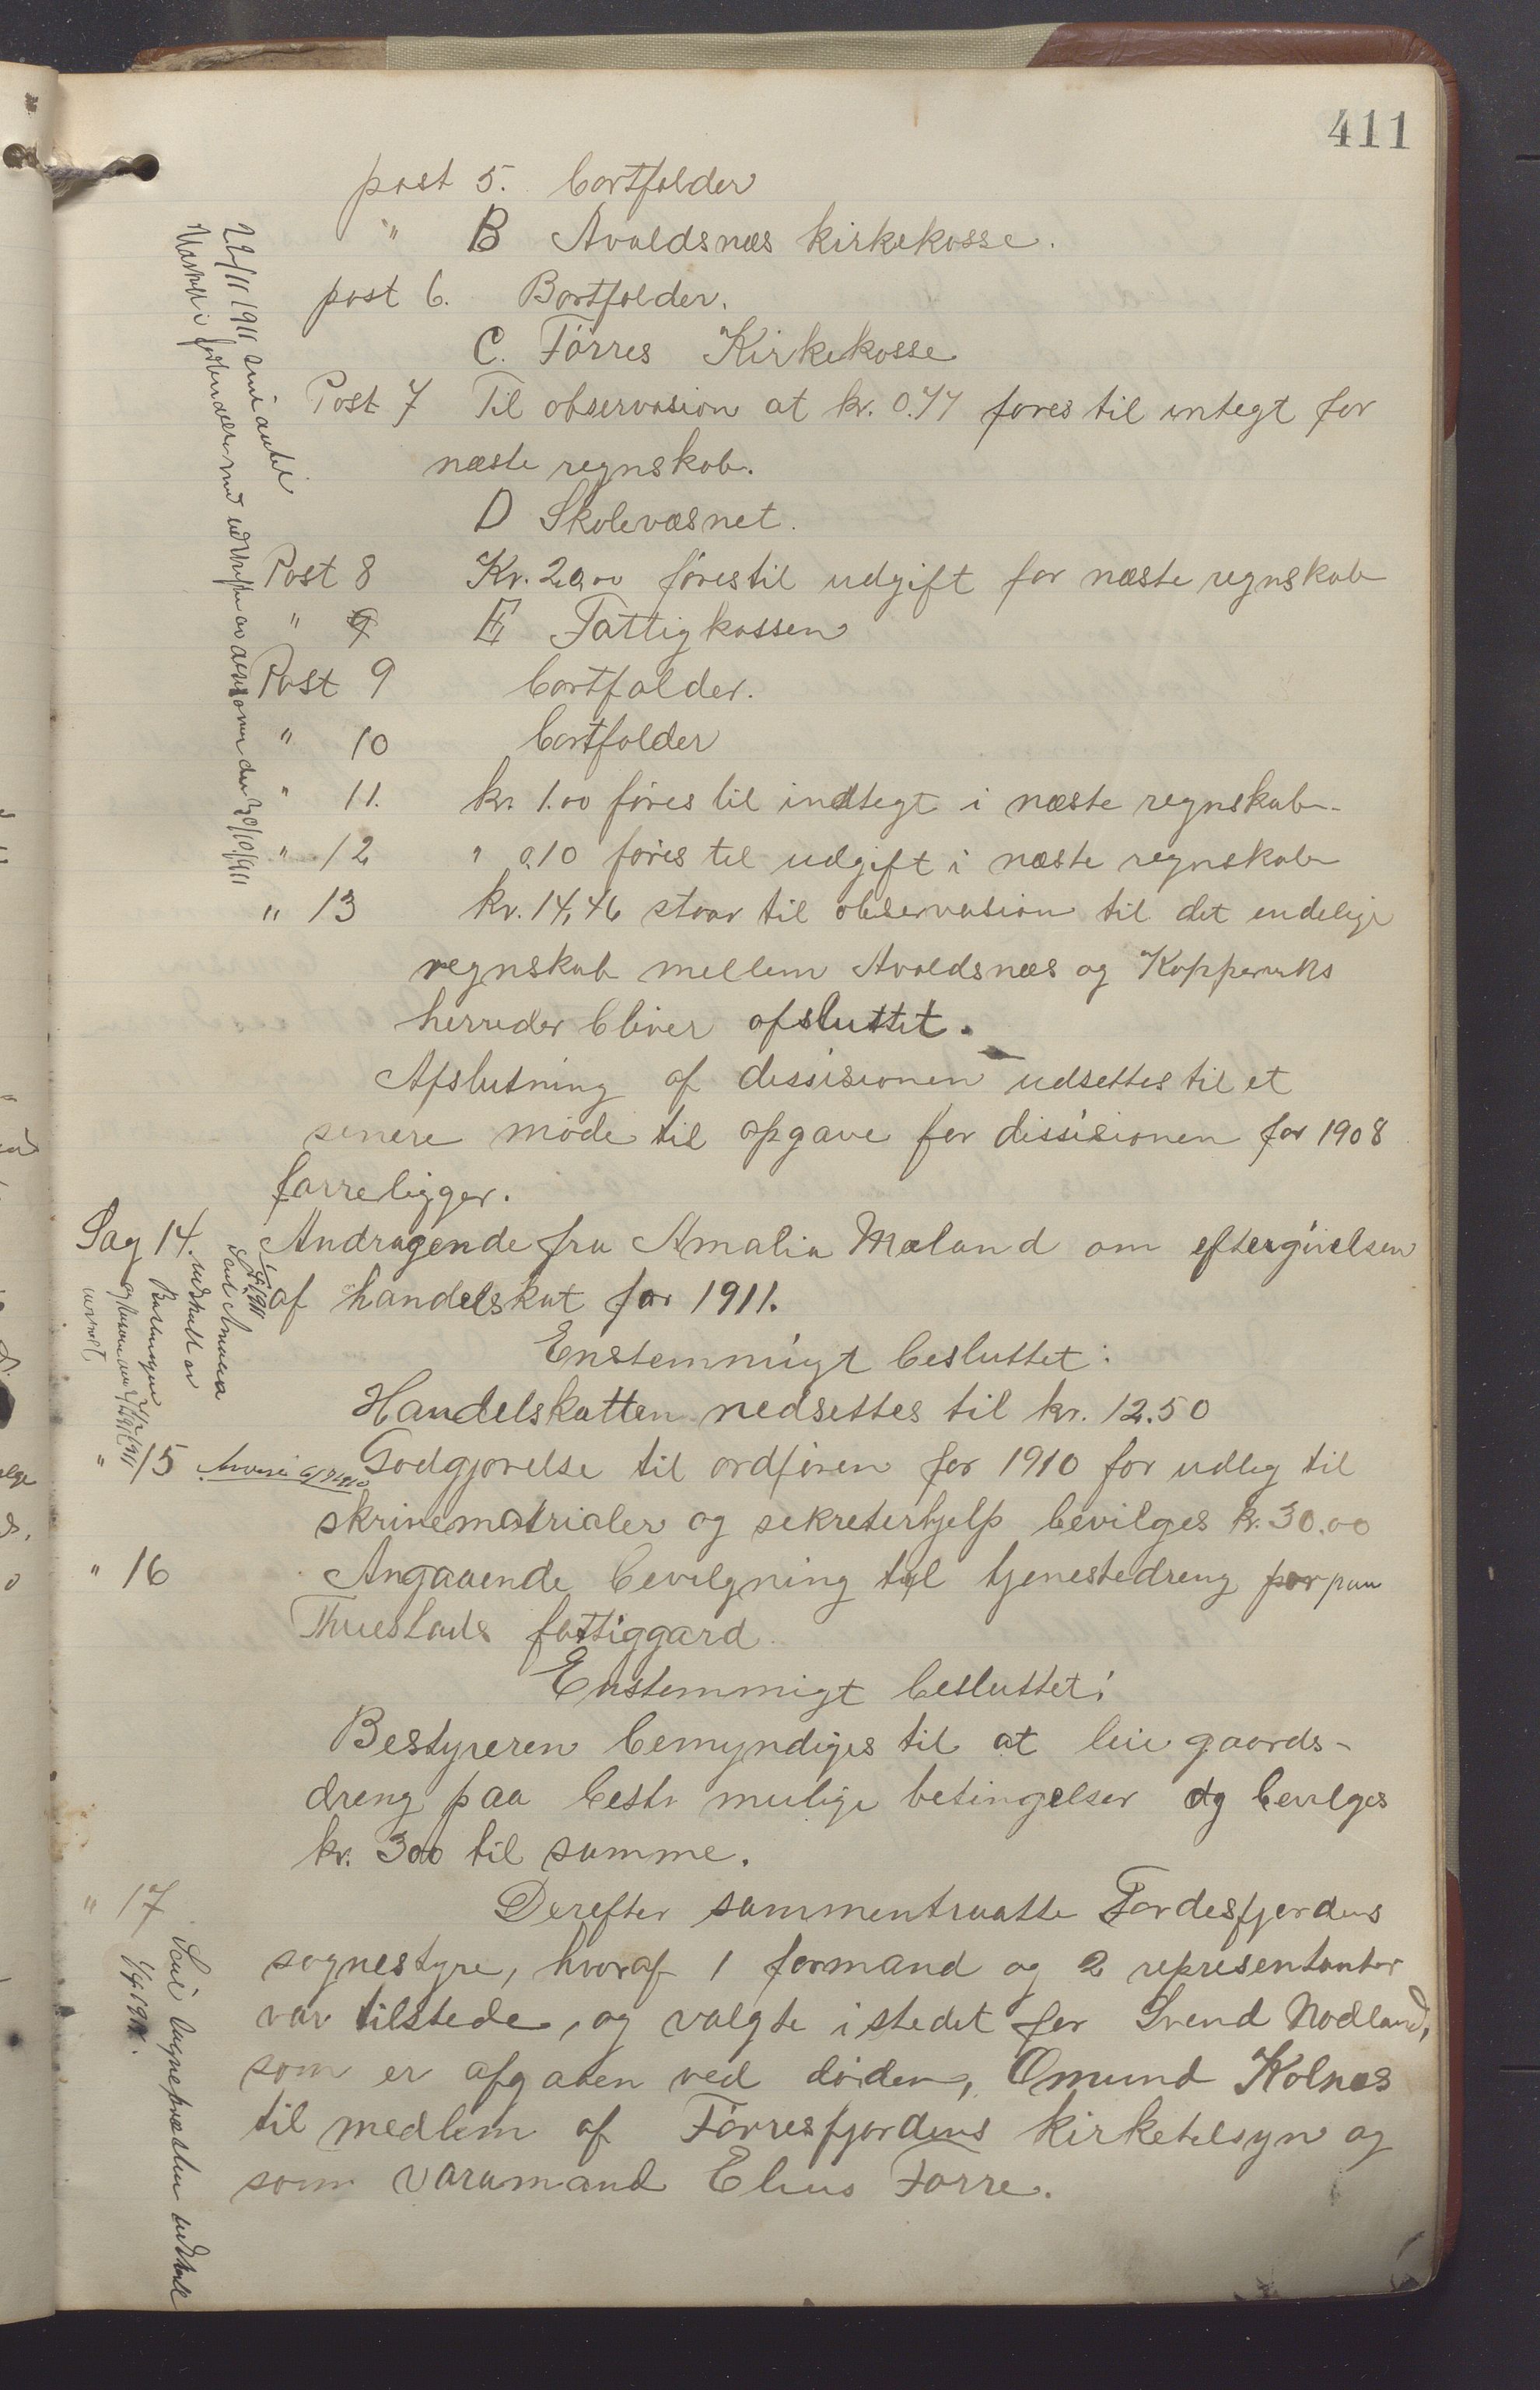 411
post 5. bortfalder
" B Avaldsnæs kirkekasse.
post 6. Bortfalder.
C. Førres Kirkekasse
Post 7 Til observasion at kr. 0.77 føres til integt for
næste regnskab.
D Skolevæsnet.
Post 8 Kr. 20.00 føres til udgift for næste regnskab
" 9 E Fattigkassen
Post 9 bortfalder.
" 10 bortfalder
" 11. kr. 1.00 føres til indtegt i næste regnskab.
" 12 " 0.10 føres til udgift i næste regnskab
" 13 kr. 14,46 staar til observasion til det endelige
regnskab mellem Avaldsnæs og Kopperviks
herreder bliver afsluttet.
Afslutning af dessisionen udsettes til et
senere møde til opgave for dissisionen for 1908
forreligger.
Sag 14. Andragende fra Amalia Mæland om eftergivelsen
af handelskat for 1911.
Enstemmigt besluttet:
Handelskatten nedsettes til kr. 12.50
" 15 Godgjørelse til ordføren for 1910 for udlæg til
skrivematrialer og sekreterhjelp bevilges kr. 30.00
" 16 Angaaende bevilgning til tjenestedreng paa
Tuestads fattiggard
Enstemmigt besluttet:
Bestyreren bemyndiges til at leie gaards-
dreng paa beste mulige betingelser og bevilges
kr. 300 til samme.
" 17 Derefter sammentraatte Fordesfjordens
sognestyre, hvoraf 1 formand og 2 representanter
var tilstede, og valgte i stedet for Svend Nodland,
som er afgaaen ved døden, Omund Kolnes
til medlem af Førresfjordens kirketilsyn og
som varamand Elias Førre.
22/11 1911 sent
30/10/1911
Sent Amalia
Sent sognepræsten udskrift